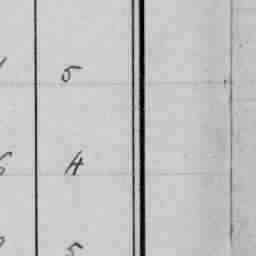 5
6 4
5